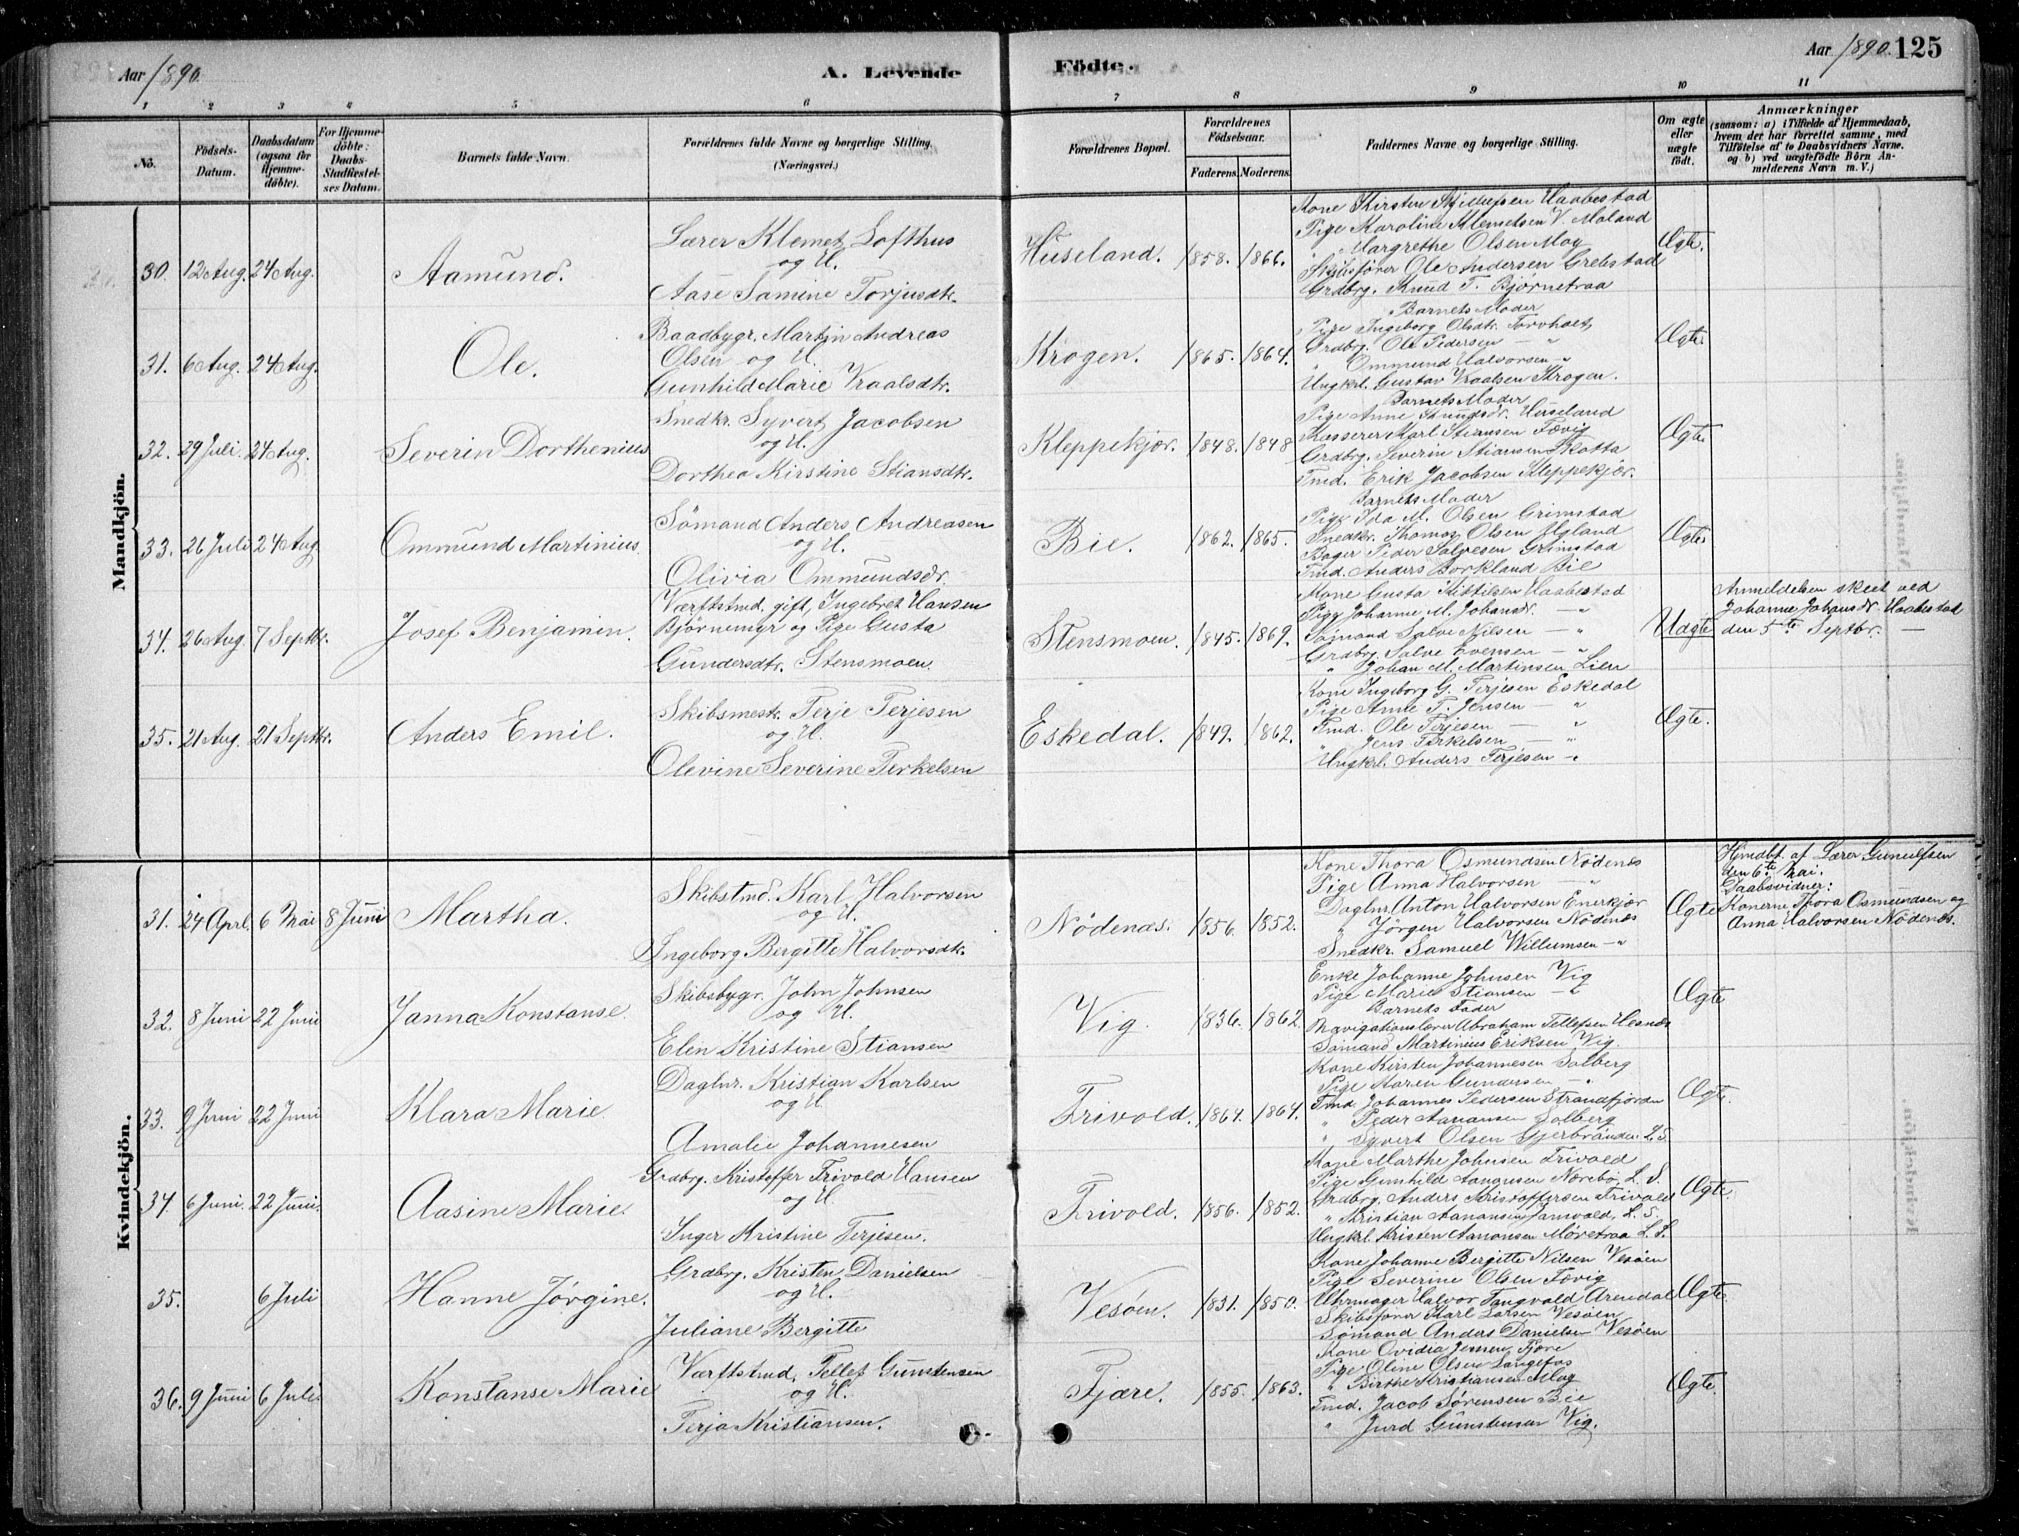 Aar 1890.
A. Levende
Födte.
Aar 1890. 125
1 2 3 4 5 6 7 8 9 10 11
No.
Födsels-Datum.
Daabsdatum (ogsaa for Hjemme-döbte).
For Hjemme-döbte: Daabs-Stadfæstelses Datum.
Barnets fulde Navn.
Forældrenes fulde Navne og borgerlige Stilling.
(Næringsvei.)
Forældrenes Bopæl.
Forældrenes Födselsaar.
Faderens. Moderens.
Faddernes Navne og borgerlige Stilling.
Om ægte eller uægte födt.
Anmærkninger
(saasom: a) i Tilfælde af Hjemmedaab,
hvem der har forrettet samme, med
Tilföielse af to Daabsvidners Navne.
og b) ved uægtefödte Börn An-
melderens Navn m. V.)
Mandkjön.
30. 12 Aug. 24 Aug. Aamund.
Lærer Klemet Lofthus
og H.
Aase Samine Torjusdtr.
Huseland. 1858. 1866.
Kone Kirsten Haabestad
Pige Karoline Klemetsen V. Moland
" Margrethe Olsen Moy
Skibsfører Ole Andersen Grebstad
Grdbrg. Knud T. Bjørnetraa
Ægte.
31. 6 Aug. 24 Aug. Ole.
Baadbygr. Martin Andreas
Olsen og H.
Gunhild Marie Vraalsdtr.
Krogen. 1865. 1864.
Barnets Moder
Pige Ingeborg Olsdtr.
Grdbrg. Ole Pedersen — "
" Ommund Halvorsen "
Ungkrl. Gustav Vraalsen Krogen.
Ægte.
32. 29 Juli. 24 Aug. Severin Dorthenius
Snedkr. Syvert Jacobsen
og H.
Dorthea Kirstine Stiansdtr.
Kleppekjær. 1848. 1848
Barnets Moder
Pige Anne Huseland
Kasserer Karl Stiansen Fævig
Grdbrg. Severin Stiansen Skotta
Tmd. Erik Jacobsen Kleppekjær.
Ægte
33. 26 Juli 24 Aug Ommund Martinius.
Sömand Anders Andreasen
og H.
Olivia Ommundsdr.
Bie. 1862. 1865.
Barnets Moder
Pige Ida M. Olsen Grimstad
Snedkr. Thomas Olsen Ugland
Bager Peder Salvesen Grimstad
Tmd. Anders Borkland Bie
Ægte
34. 26 Aug. 7 Septbr. Josef Benjamin.
Værftstmd. gift, Ingebret Hansen
Bjørnemyr og Pige Gusta
Gundersdtr. Stensmoen.
Stensmoen. 1845. 1869.
Kone Gusta Kittilsen Haabestad
Pige Johanne M. Johansdr. — "
Sømand Salve Nilsen — "
Grdbrg. Salve — "
" Johan M. Martinsen Lien
Uægte
Anmeldelsen skeet ved
Johanne Johansdr. Haabestad
den 5te Septbr. —
35. 21 Aug. 21 Septbr. Anders Emil.
Skibsmestr. Terje Terjesen
og H.
Olevine Severine Terkelsen
Eskedal. 1849. 1862.
Kone Ingeborg G. Terjesen Eskedal
Pige Anne T. Jensen — "
Tmd. Ole Terjesen — "
" Jens Terkelsen — "
Ungkrl. Anders Terjesen - "
Ægte.
Kvindekjön.
31. 24 Aprl. 6 Mai 8 Juni Martha.
Skibstmd. Karl Halvorsen
og H.
Ingeborg Bergitte Halvorsdtr.
Nödenæs. 1856. 1852.
Kone Thora Osmundsen Nödenæs
Pige Anna Halvorsen — "
Daglnr. Anton Halvorsen Enerkjær
" Jörgen Halvorsen Nödenæs
Snedkr. Samuel Willumsen - "
Ægte
Hjmdbt. af Lærer Gunulfsen
den 6te Mai.
Daabsvidner:
Konerne Thora Osmundsen og
Anna Halvorsen Nödenæs.
32. 8 Juni 22 Juni Janna Konstanse.
Skibsbygr. John Johnsen
og H.
Elen Kristine Stiansen
Vig. 1836. 1862.
Enke Johanne Johnsen Vig
Pige Marie Stiansen — "
Barnets Fader
Navigationslærer Abraham Tellefsen Hesnæs
Sömand Martinius Eriksen Vig.
Ægte
33. 9 Juni 22 Juni Klara Marie.
Daglnr. Kristian Karlsen
og H.
Amalie Johannesen
Frivold. 1864. 1864.
Kone Kirsten Johannesen Solberg
Pige Maren Gundersen — "
Tmd. Johannes Pedersen Strandfjorden
" Peder Aanansen Solberg
" Syvert Olsen Gjerbranden L. S.
Ægte.
34. 6 Juni. 22 Juni. Aasine Marie.
Grdbrg. Kristoffer Frivold Hansen
og H.
Inger Kristine Terjesen.
Frivold. 1856. 1852.
Kone Marthe Johnsen Frivold
Pige Gunhild Aanansen Nærebø L. S.
Grdbrg. Anders Kristoffersen Frivold
" Kristian Aanonsen L. S.
Ungkrl. Kristen Aanonsen Møretraa L. S.
Ægte.
35. 6 Juli Hanne Jørgine.
Grdbrg. Kristen Danielsen
og H.
Juliane Bergitte
Vesøen. 1831. 1850.
Kone Johanne Bergitte Nilsen Vesöen
Pige Severine Olsen Fævig
Uhrmager Halvor Tangvald Arendal
Skibsfører Karl Larsen Vesöen
Sömand Anders Danielsen Vesöen
Ægte.
36. 9 Juni 6 Juli. Konstanse Marie
Værftstmd. Tellef Gunstensen
og H.
Terja Kristiansen.
Fjære. 1855. 1863.
Kone Ovidia Jensen Fjære
Pige Oline Olsen Langefos
" Birthe Kristiansen Moy
Tmd. Jacob Sørensen Bie
" Jurd Gunstensen Vig.
Ægte.